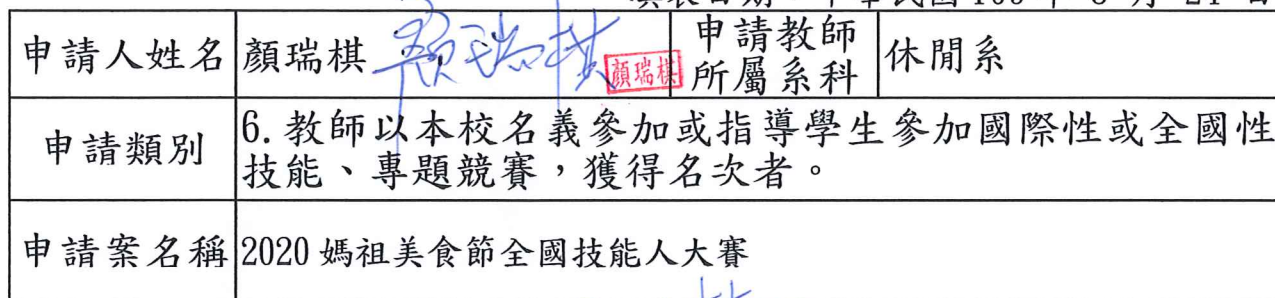 申請人姓名 顏瑞棋 顏瑞棋 顏瑞棋 申請教師所屬系科 休閒系
申請類別 6.教師以本校名義參加或指導學生參加國際性或全國性
技能、專題競賽,獲得名次者。
申請案名稱 2020媽祖美食節全國技能人大賽